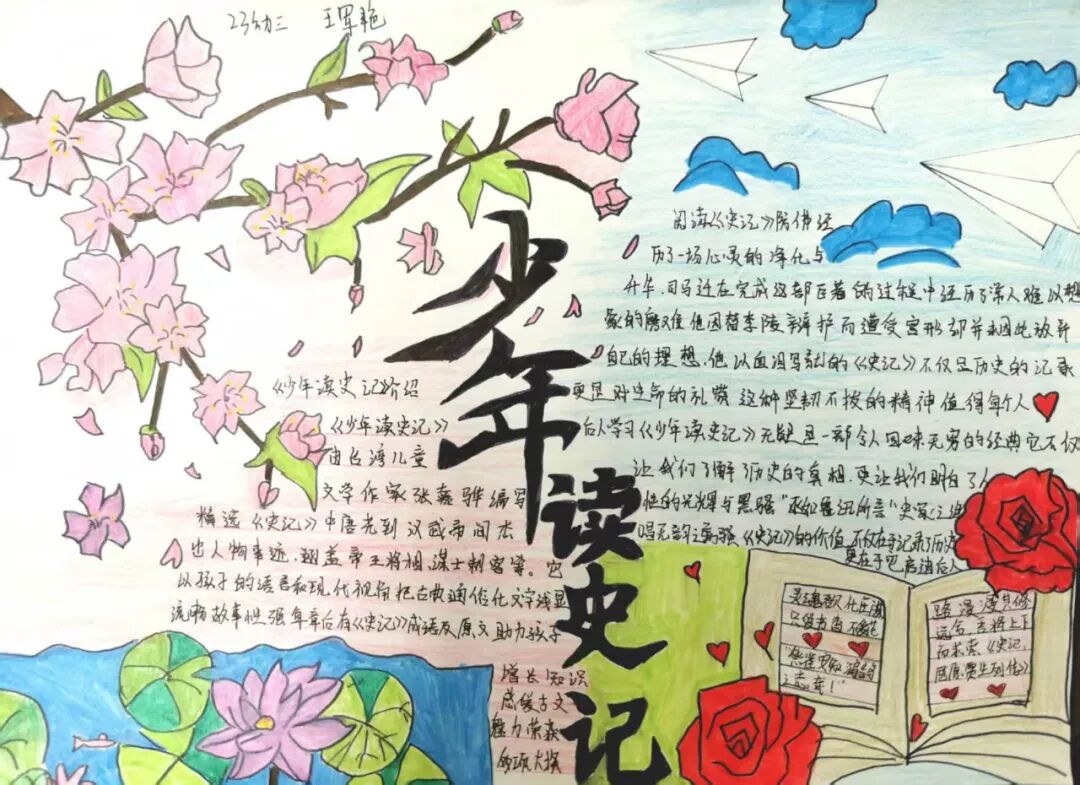 23幼三 王军艳
少年读史记
《少年读史记》介绍
《少年读史记》
由台湾儿童
文学作家张嘉骅编写
精选《史记》中唐尧到汉武帝间杰
出人物事迹,涵盖帝王将相谋士刺客等。它
以孩子的语言和现代视角把古典通俗化文字浅显
流畅故事性强每章后有《史记》成语及原文助力孩子
增长知识
感受古文
魅力荣获
多项大奖
阅读《史记》仿佛经
历了一场心灵的净化与
升华,司马迁在完成这部巨著的过程中经历了常人难以想
象的磨难他因替李陵辩护而遭受宫刑却并未因此放弃
自己的理想,他以血泪写就的《史记》不仅是历史的记录
更是对生命的礼赞这种坚韧不拔的精神值得每个人
后人学习《少年读史记》无疑是一部令人回味无穷的经典它不仅
让我们了解了历史的真相,更让我们明白了人
性的光辉与黑暗"正如鲁迅所言"史家之绝
唱无韵之离骚《史记》的价值不仅在于记录了历史
更在于
路漫漫其修
远兮,吾将上下
而求索。《史记,
屈原贾生列传》